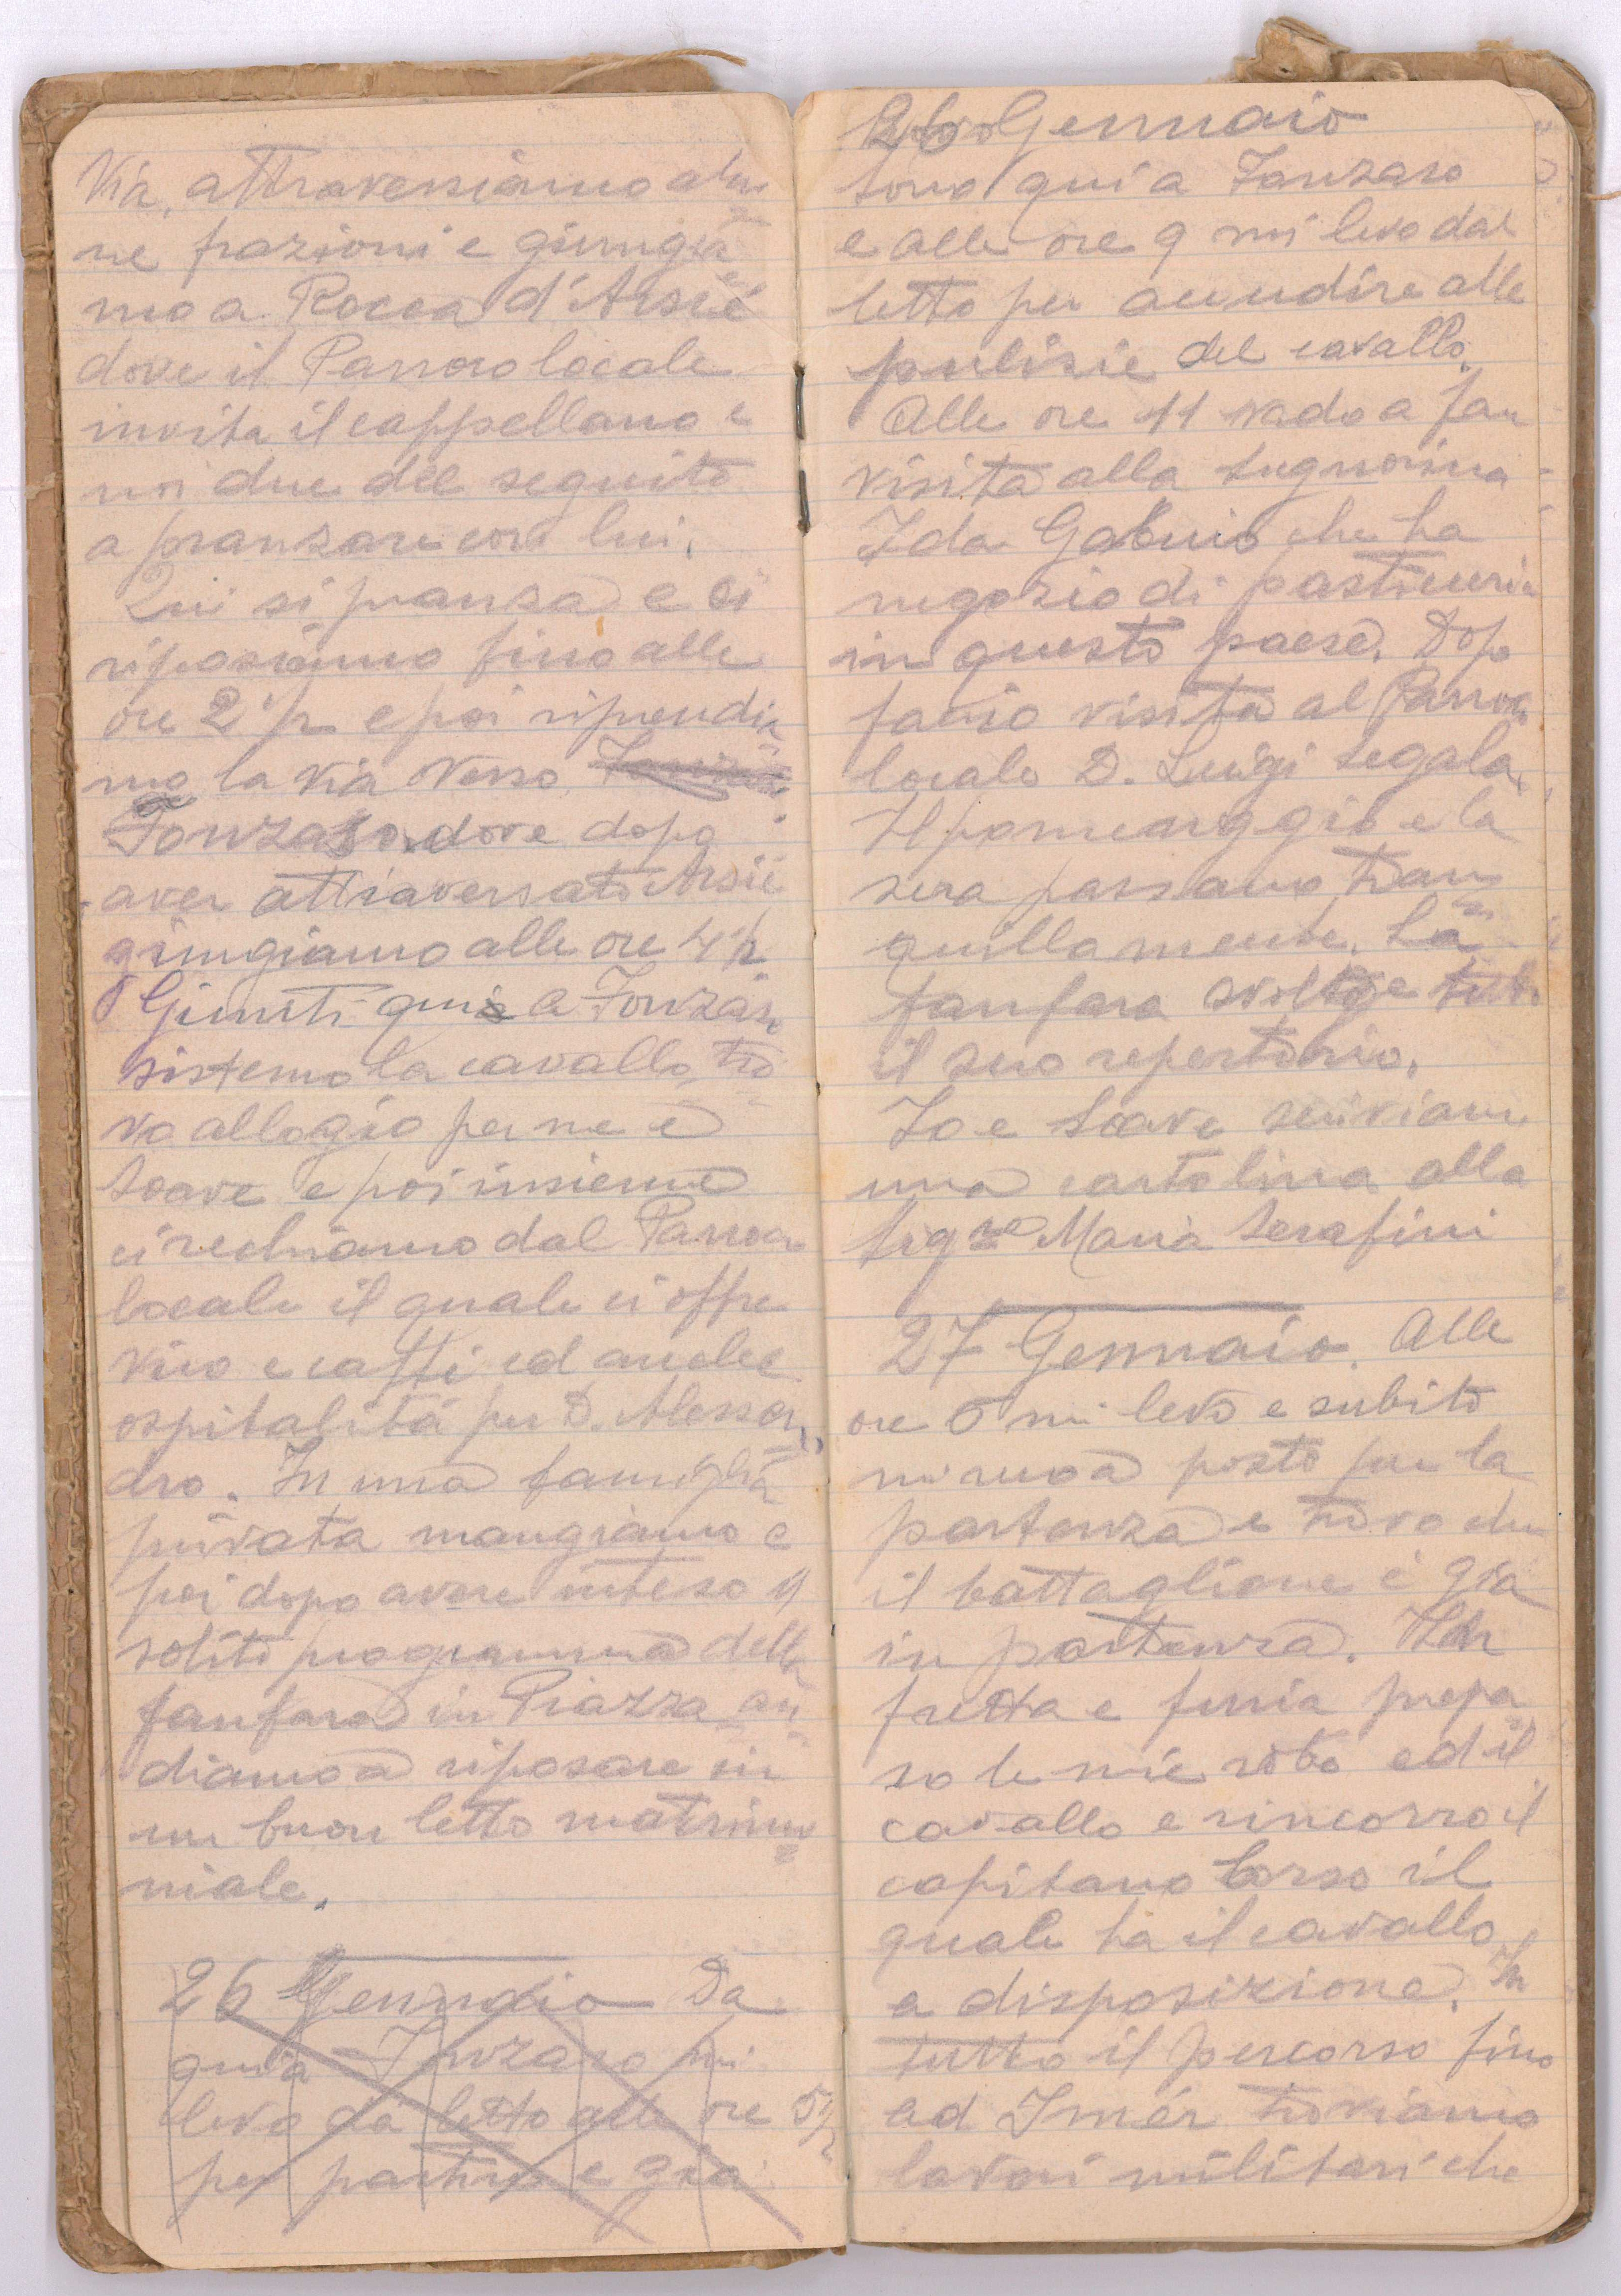 Via, attraversiamo alcu=
ne frazioni e giungia=
mo a Rocca d'Arsiè
dove il Parroco locale
invita il cappellano e
noi due del seguito
a pranzare con lui.
Qui si pranza e ci
riposiamo fino alle
ore 2 1/2 e poi riprendia=
mo la via verso
Fonzaso dove dopo
aver attraversato Arsiè
giungiamo alle ore 4 1/2
Giunti qui a Fonzaso
sistemo la cavallo, tro=
vo allogio per me e
Soave e poi insieme
ci rechiamo dal Parroco
locale il quale ci offre
vino e caffè ed anche
ospitalità per D. Alessan=
dro. In una famiglia
privata mangiamo e
poi dopo avere inteso il
solito programma della
fanfara in Piazza an=
diamo a riposare in
un buon letto matrimo=
niale.
26 Gennaio Da
qui a Fonzaso mi
levo da letto alle ore 5 1/2
per partire e già
26 Gennaio
Sono qui a Fonzaso
e alle ore 9 mi levo dal
letto per accudire alle
pulizie del cavallo.
Alle ore 11 vado a far
visita alla Signorina
Ida che ha
negozio di pasticceria
in questo paese. Dopo
faccio visita al Parroco
locale D. Luigi Segala.
Il pomeriggio e la
sera passano tran=
quillamente. La
fanfara svolge tutto
il suo repertorio.
Io e Soave scriviamo
una cartolina alla
Sig.re Maria Serafini
27 Gennaio. Alle
ore 6 mi levo e subito
mi reco a posto per la
partenza e trovo che
il battaglione è già
in partenza. In
fretta e furia prepa
ro le mie robe ed il
cavallo e rincorro il
capitano Corso il
quale ha il cavallo
a disposizione. In
tutto il percorso fino
ad Imèr troviamo
lavori militari che